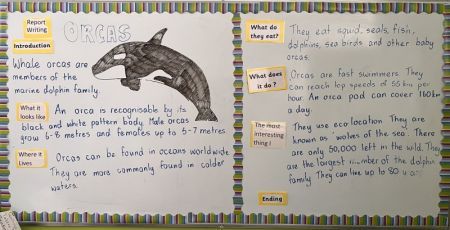 Report Writing
ORCAS
Introduction
Whale orcas are
members of the
marine dolphin family.
What it looks like
An orca is recognisable by its
black and white pattern body. Male orcas
grow 6-8 metres and females up to 5-7 metres.
Where it Lives
Orcas can be found in oceans worldwide
They are more commonly found in colder
waters.
What do they eat?
They eat squid, seals, fish,
dolphins, sea birds and other baby
orcas.
What does it do?
Orcas are fast swimmers. They
can reach top speeds of 55 km per
hour. An orca pod can cover 160km
a day.
The most interesting thing!
They use eco location. They are
known as 'wolves of the sea'. There
are only 50,000 left in the wild. They
are the largest number of the dolphin
family. They can live up to 80
Ending